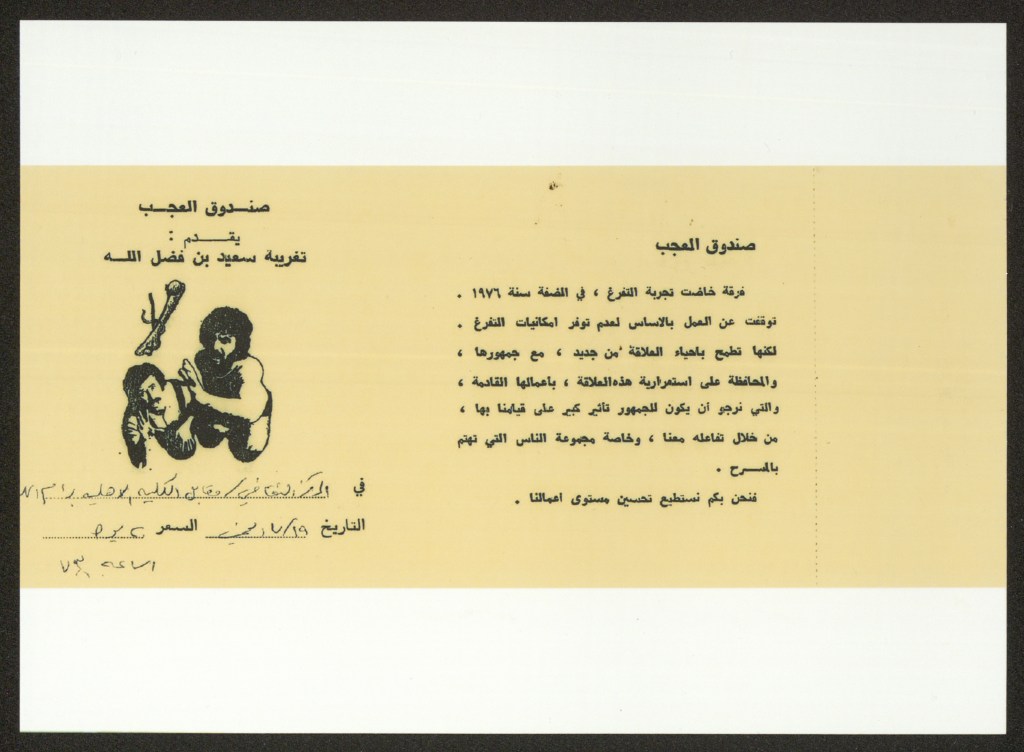 صندوق العجب
فرقة خاضت تجربة التفرغ ، في الضفة سنة ١٩٧٦ .
توقفت عن العمل بالاساس لعدم توفر امكانيات التفرغ .
لكنها تطمح باحياء العلاقة من جديد ، مع جمهورها ،
والمحافظة على استمرارية هذه العلاقة ، بأعمالها القادمة ،
والتي نرجو أن يكون للجمهور تأثير كبير على قيامنا بها ،
من خلال تفاعله معنا ، وخاصة مجموعة الناس التي تهتم
بالمسرح .
فنحن بكم نستطيع تحسين مستوى اعمالنا .
صندوق العجب
يقدم :
تغريبة سعيد بن فضل الله
في المركز الثقافي / مقابل الكلية الاهلية برام الله
التاريخ ١٩/٧ السعر
الساعة